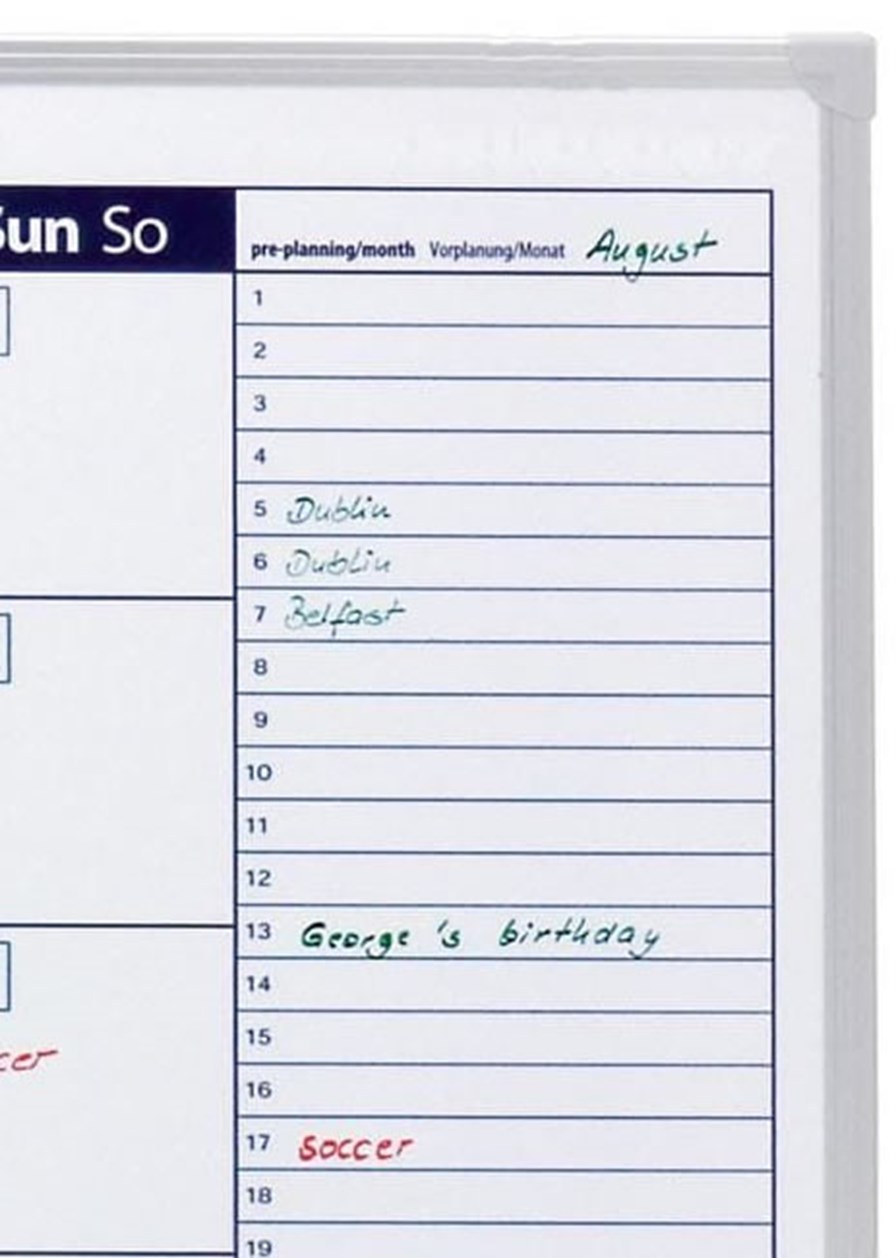 Sun So
pre-planning/month Vorplanung/Monat August
1
2
3
4
5 Dublin
6 Dublin
7 Belfast
8
9
10
11
12
13 George's birthday
14
15
16
cer
17 soccer
18
19